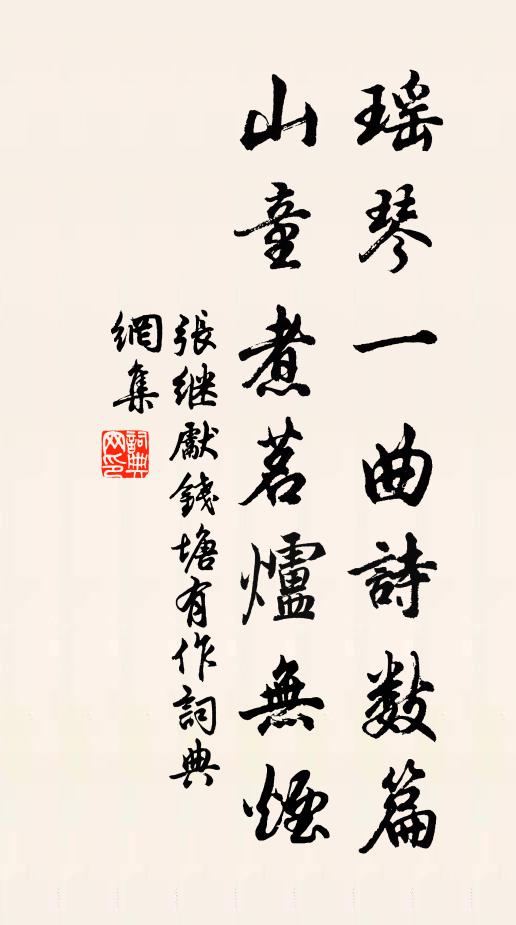 瑶琴一曲詩数篇
山童煮茗爐無煙
張继獻錢塘有作詞典
網集
詞典網印